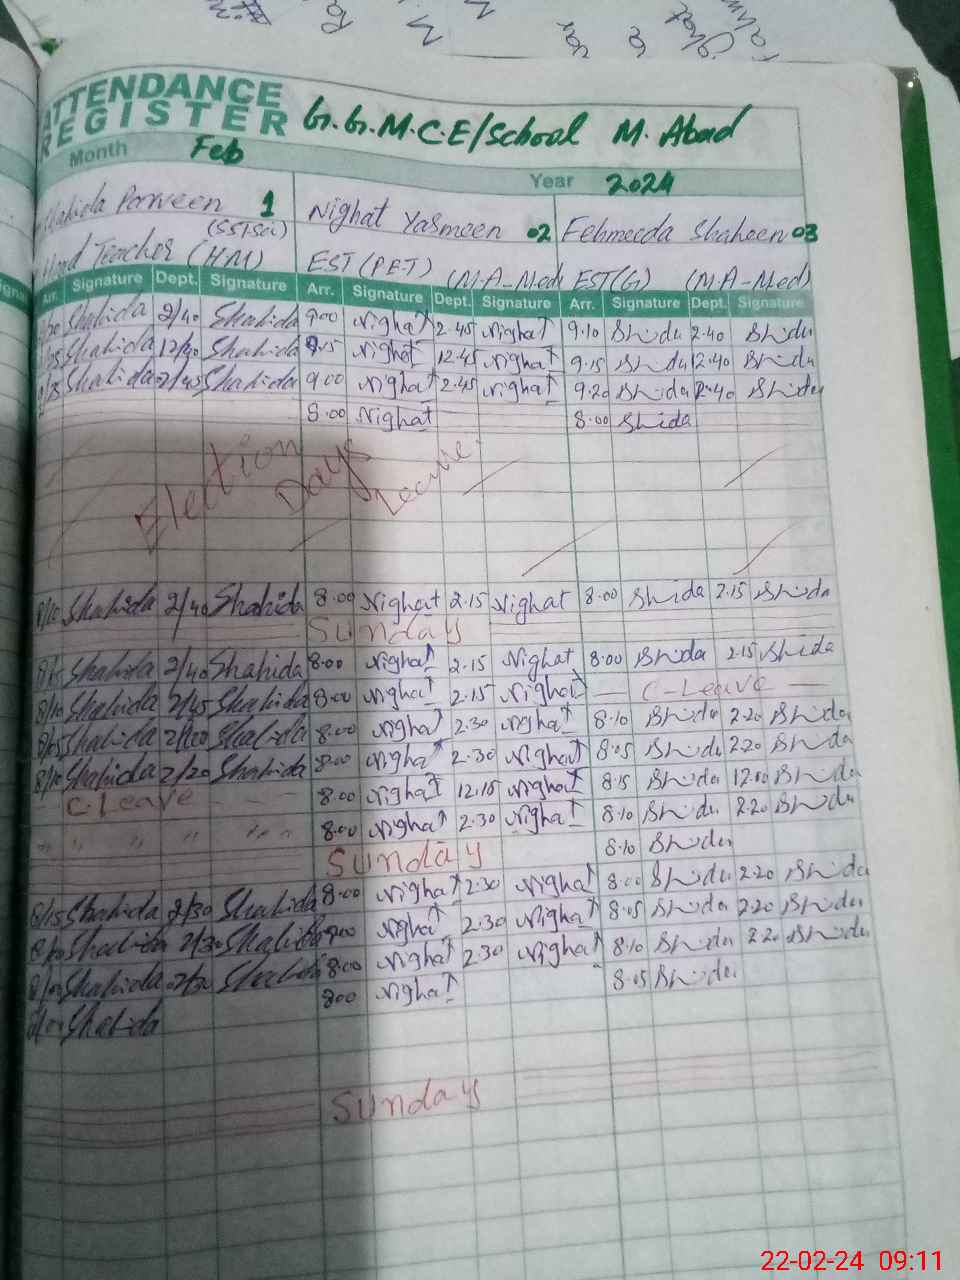 ATTENDANCE
REGISTER G.G.M.C.E/School M. Abad
Month Feb
Year 2024
Shahida Parveen 1 Nighat Yasmeen 02 Fehmeeda Shaheen 03
Head Teacher (HM) EST (PET) (M.A-Med) EST(G) (M.A-Med)
Arr. Signature Dept. Signature Arr. Signature Dept. Signature Arr. Signature Dept. Signature
Shahida 2/40 Shahida 9.00 Nighat 2.45 Nighat 9.10 Shida 2.40 Shida
Shahida 12/40 Shahida 9.15 Nighat 12.45 Nighat 9.15 Shida 12.40 Shida
Shahida 2/45 Shahida 9.00 Nighat 2.45 Nighat 9.20 Shida 2.40 Shida
8.00 Nighat 8.00 Shida
Election
Days
Leave
8/10 Shahida 2/40 Shahida 8.00 Nighat 2.15 Nighat 8.00 Shida 2.15 Shida
Sunday
Shahida 2/40 Shahida 8.00 Nighat 2.15 Nighat 8.00 Shida 2.15 Shida
8/10 Shahida 2/45 Shahida 8.00 Nighat 2.15 Nighat — C-Leave —
Shahida Shahida 8.00 Nighat 2.30 Nighat 8.10 Shida 2.20 Shida
8/10 Shahida 2/20 Shahida 8.00 Nighat 2.30 Nighat 8.05 Shida 2.20 Shida
C.Leave 8.00 Nighat 12.15 Nighat 8.15 Shida 12.00 Shida
" " " " " 8.00 Nighat 2.30 Nighat 8.10 Shida 2.20 Shida
Sunday 8.10 Shida
8/15 Shahida 2/30 Shahida 8.00 Nighat 2.30 Nighat 8.00 Shida 2.20 Shida
Shahida 2/30 Shahida Nighat 2.30 Nighat 8.05 Shida 2.20 Shida
Shahida Shahida 8.00 Nighat 2.30 Nighat 8.10 Shida 2.20 Shida
Shahida 800 Nighat 8.05 Shida
Sunday
22-02-24 09:11